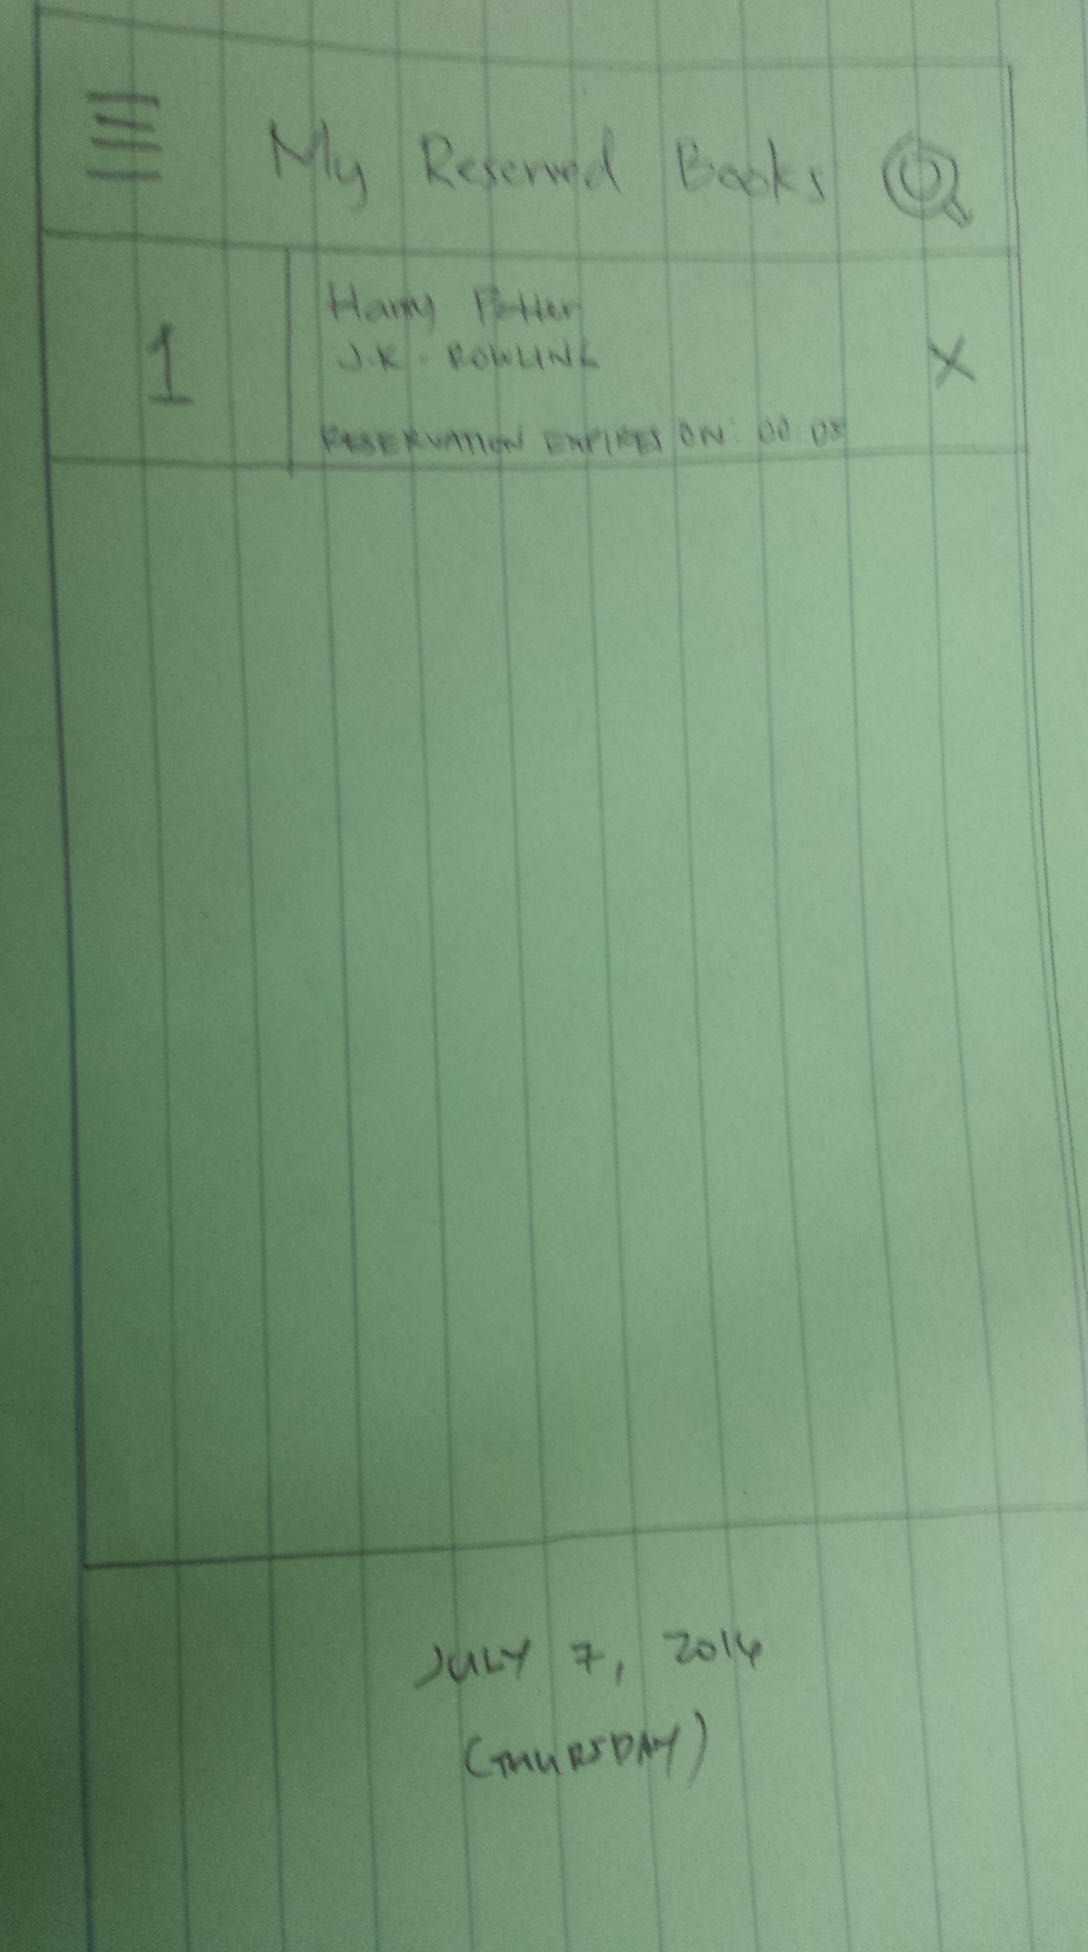 My Reserved Books
1
Harry Potter
J.K. ROWLING
X
RESERVATION EXPIRES ON:
JULY 7, 2016
(THURSDAY)